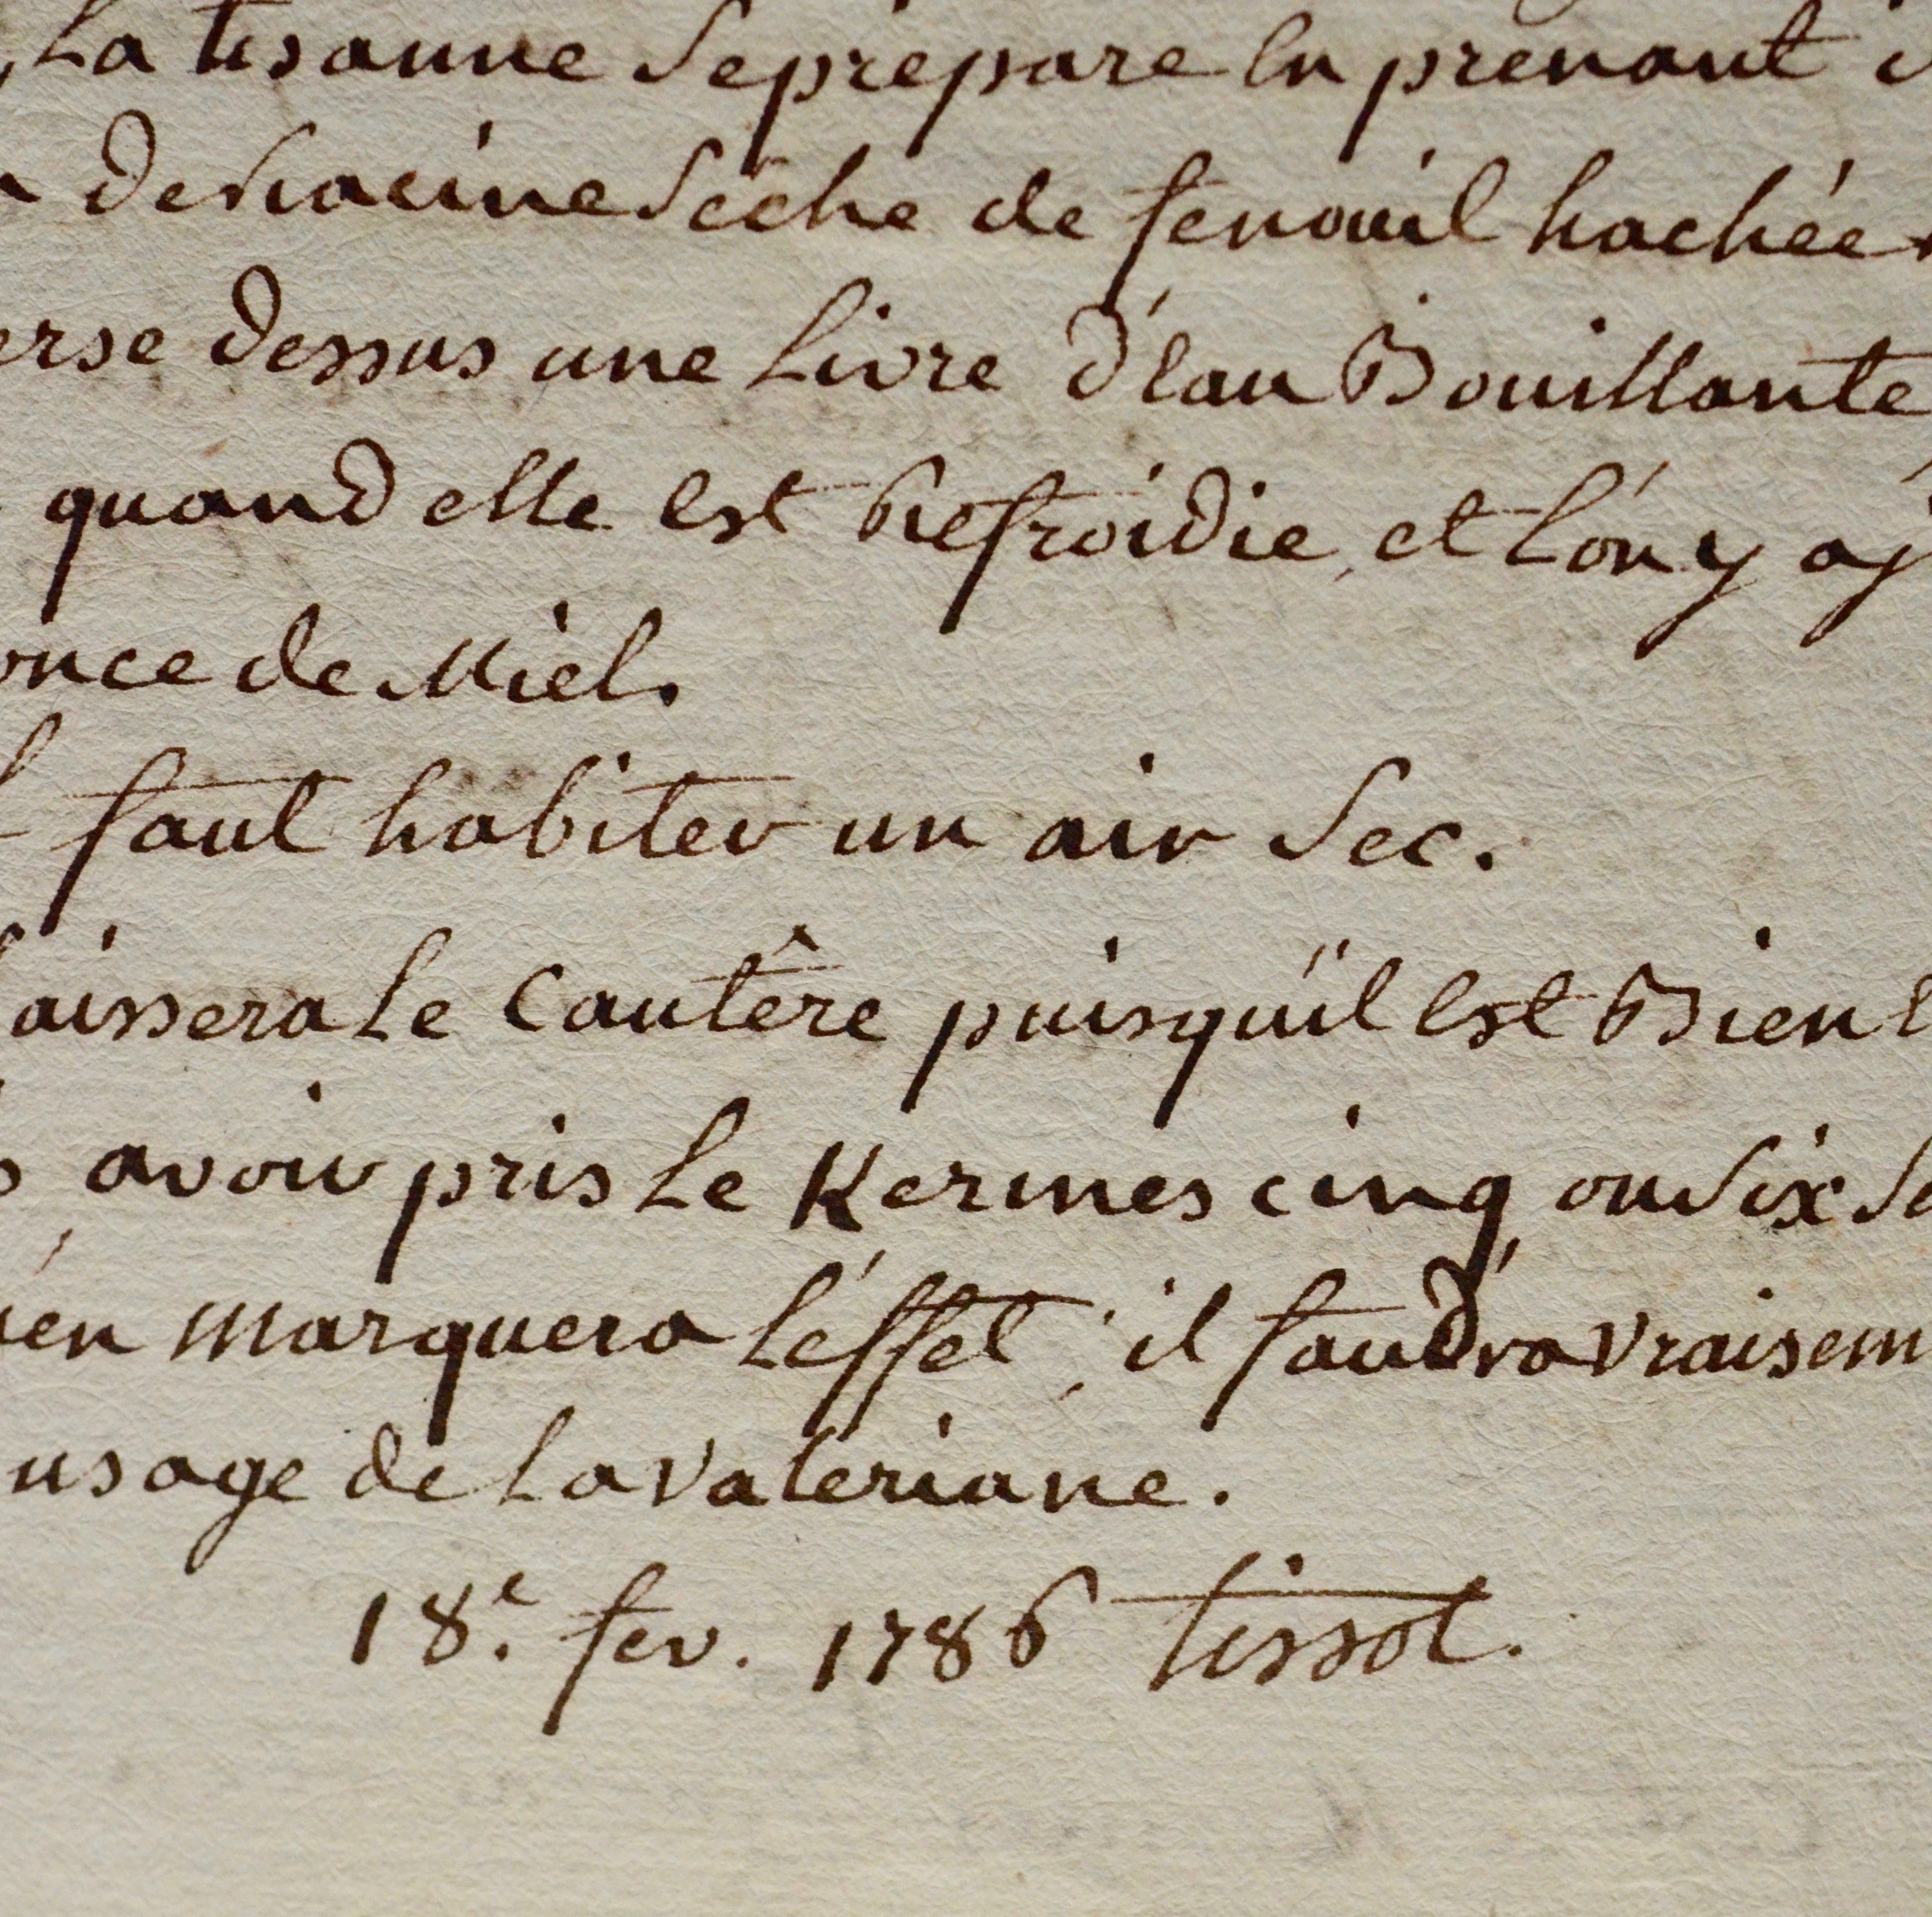 La tisanne Seprepare en prenant
de racine Sêche de fenouil hachée
erse dessus une Livre d'eau Bouillante
quand elle est Refroidie, et L'on y aj
once de Miel.
faut habiter un air Sec.
aissera Le Cautêre puisqu'il est Bien
avoir pris Le Kermes cinq ou Six
en marquera L'effet, il faudra vraisem
usage de La valeriane.
18.e fev. 1786 tissot.